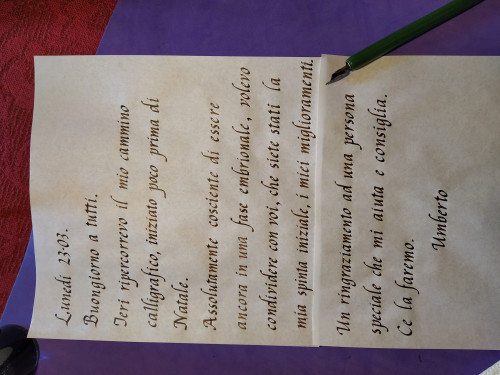 Lunedì 23-03.
Buongiorno a tutti.
Ieri ripercorrevo il mio cammino
calligrafico, iniziato poco prima di
Natale.
Assolutamente cosciente di essere
ancora in una fase embrionale, volevo
condividere con voi, che siete stati la
mia spinta iniziale, i miei miglioramenti.
Un ringraziamento ad una persona
speciale che mi aiuta e consiglia.
Ce la faremo.
Umberto